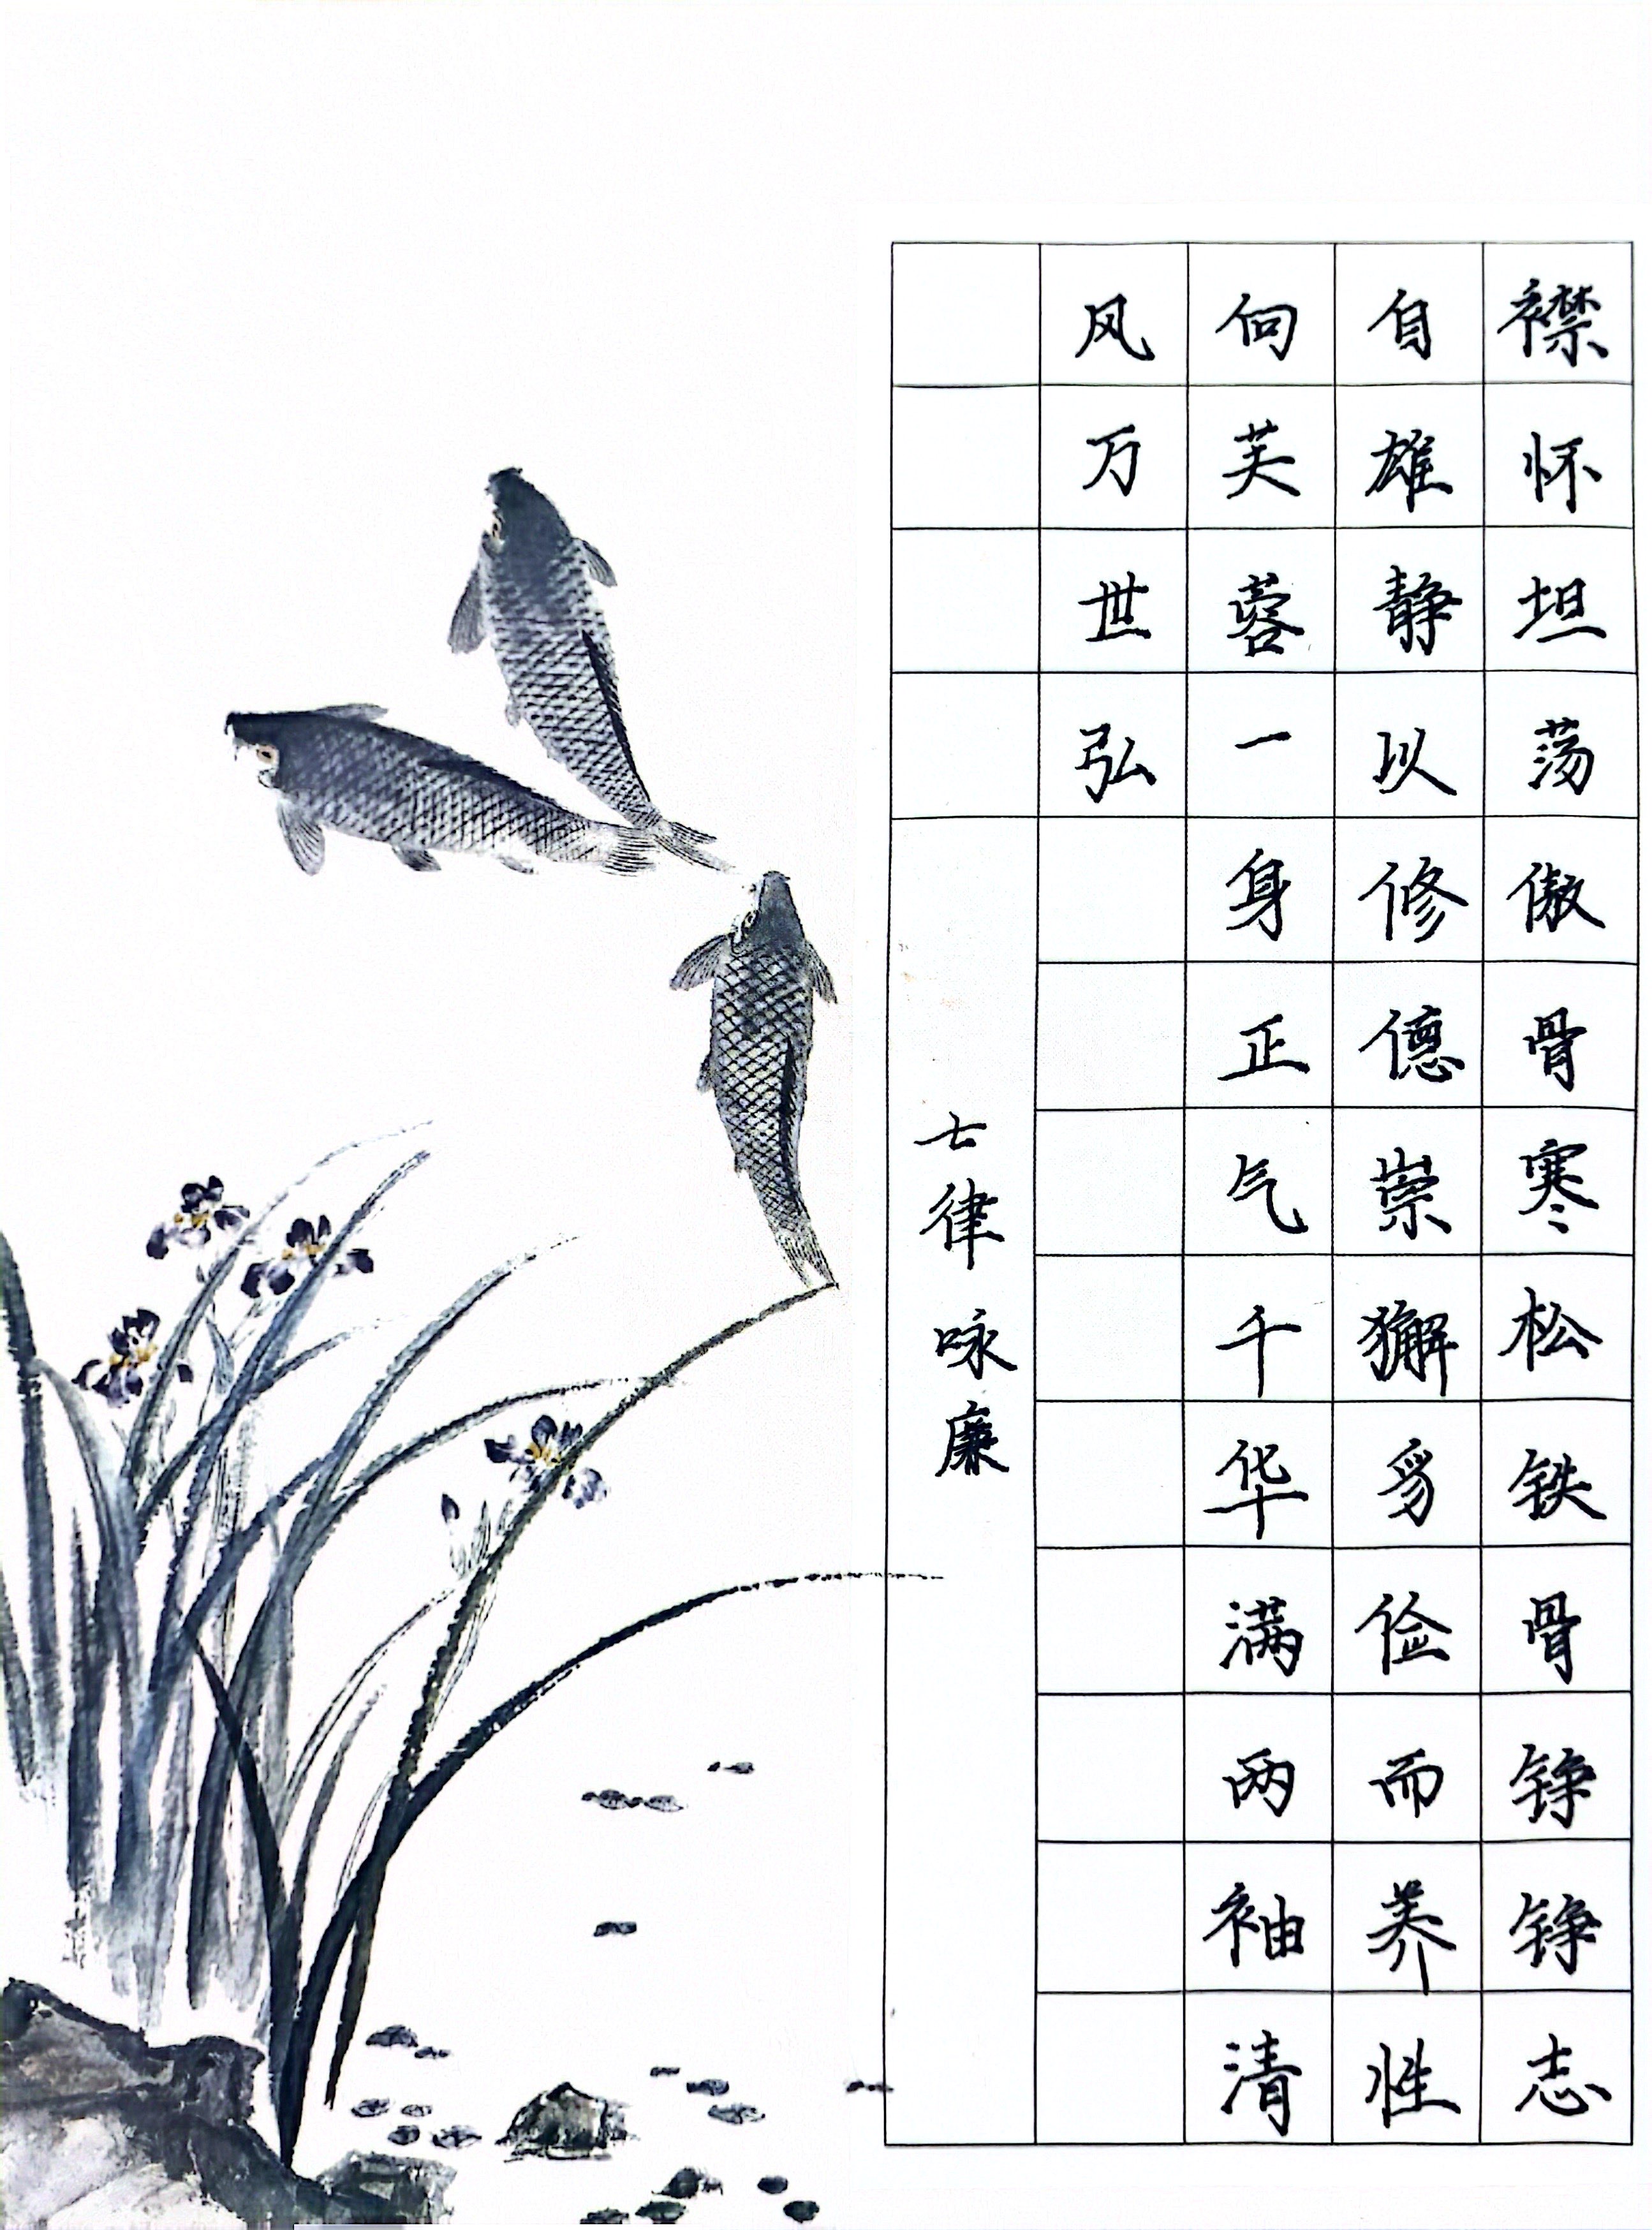 襟怀坦荡傲骨寒松铁骨铮铮志
自雄静以修德崇獬豸俭而养性
向芙蓉一身正气千华满两袖清
风万世弘
七律 咏廉